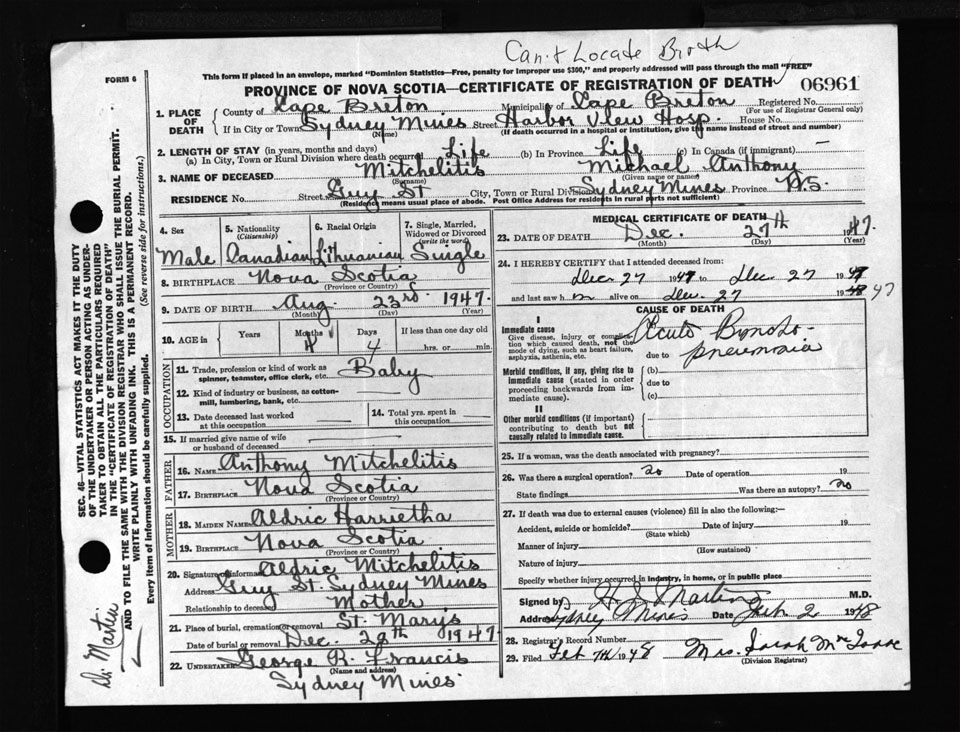 Can't Locate Birth
FORM 6
This form if placed in an envelope, marked "Dominion Statistics—Free, penalty for improper use $300," and properly addressed will pass through the mail "FREE"
PROVINCE OF NOVA SCOTIA—CERTIFICATE OF REGISTRATION OF DEATH
06961
1. PLACE OF DEATH
County of Cape Breton Municipality of Cape Breton Registered No.
(For use of Registrar General only)
If in City or Town Sydney Mines Street Harbor View Hosp. House No.
(Name) (If death occurred in a hospital or institution, give the name instead of street and number)
2. LENGTH OF STAY (in years, months and days)
(a) In City, Town or Rural Division where death occurred Life (b) In Province Life (c) In Canada (if immigrant) —
3. NAME OF DECEASED Mitchelitis Michael Anthony
(Surname) (Given name or names)
RESIDENCE No. Street Guy St City, Town or Rural Division Sydney Mines Province N.S.
(Residence means usual place of abode. Post Office Address for residents in rural parts not sufficient)
4. Sex
Male
5. Nationality
(Citizenship)
Canadian
6. Racial Origin
Lithuanian
7. Single, Married, Widowed or Divorced
(write the word)
Single
8. BIRTHPLACE Nova Scotia
(Province or Country)
9. DATE OF BIRTH Aug. 23rd 1947.
(Month) (Day) (Year)
10. AGE in
Years Months Days If less than one day old
4 4 hrs. or min.
OCCUPATION
11. Trade, profession or kind of work as
spinner, teamster, office clerk, etc. Baby
12. Kind of industry or business, as cotton-
mill, lumbering, bank, etc.
13. Date deceased last worked
at this occupation
14. Total yrs. spent in
this occupation
15. If married give name of wife
or husband of deceased
FATHER
16. NAME Anthony Mitchelitis
17. BIRTHPLACE Nova Scotia
(Province or Country)
MOTHER
18. MAIDEN NAME Aldric Harrietha
19. BIRTHPLACE Nova Scotia
(Province or Country)
20. Signature of informant Aldric Mitchelitis
Address Guy St. Sydney Mines
Relationship to deceased Mother
21. Place of burial, cremation or removal St. Marys
Date of burial or removal Dec. 28th 1947
22. UNDERTAKER George R. Francis
(Name and address)
Sydney Mines
MEDICAL CERTIFICATE OF DEATH
23. DATE OF DEATH Dec. 27th 1947.
(Month) (Day) (Year)
24. I HEREBY CERTIFY that I attended deceased from:
Dec 27 1947 to Dec. 27 1947
and last saw h m alive on Dec. 27 1948 47
CAUSE OF DEATH
I
Immediate cause
Give disease, injury or complication which caused death, not the mode of dying, such as heart failure, asphyxia, asthenia, etc.
Acute Broncho-
due to pneumonia
Morbid conditions, if any, giving rise to immediate cause (stated in order proceeding backwards from immediate cause).
(b)
due to
(c)
II
Other morbid conditions (if important) contributing to death but not causally related to immediate cause.
25. If a woman, was the death associated with pregnancy?
26. Was there a surgical operation? no Date of operation 19
State findings Was there an autopsy? no
27. If death was due to external causes (violence) fill in also the following:—
Accident, suicide or homicide? Date of injury 19
(State which)
Manner of injury
(How sustained)
Nature of injury
Specify whether injury occurred in industry, in home, or in public place
Signed by M.D.
Address Sydney Mines Date Feb 2 1948
28. Registrar's Record Number
29. Filed Feb 7th 1948 Mrs. Sarah McIsaac
(Division Registrar)
SEC. 46—VITAL STATISTICS ACT MAKES IT THE DUTY
OF THE UNDERTAKER OR PERSON ACTING AS UNDER-
TAKER TO OBTAIN ALL THE PARTICULARS REQUIRED
IN THE "CERTIFICATE OF REGISTRATION OF DEATH"
AND TO FILE THE SAME WITH THE DIVISION REGISTRAR WHO SHALL ISSUE THE BURIAL PERMIT.
WRITE PLAINLY WITH UNFADING INK. THIS IS A PERMANENT RECORD.
Every item of information should be carefully supplied. (See reverse side for instructions.)
Dr. Marten